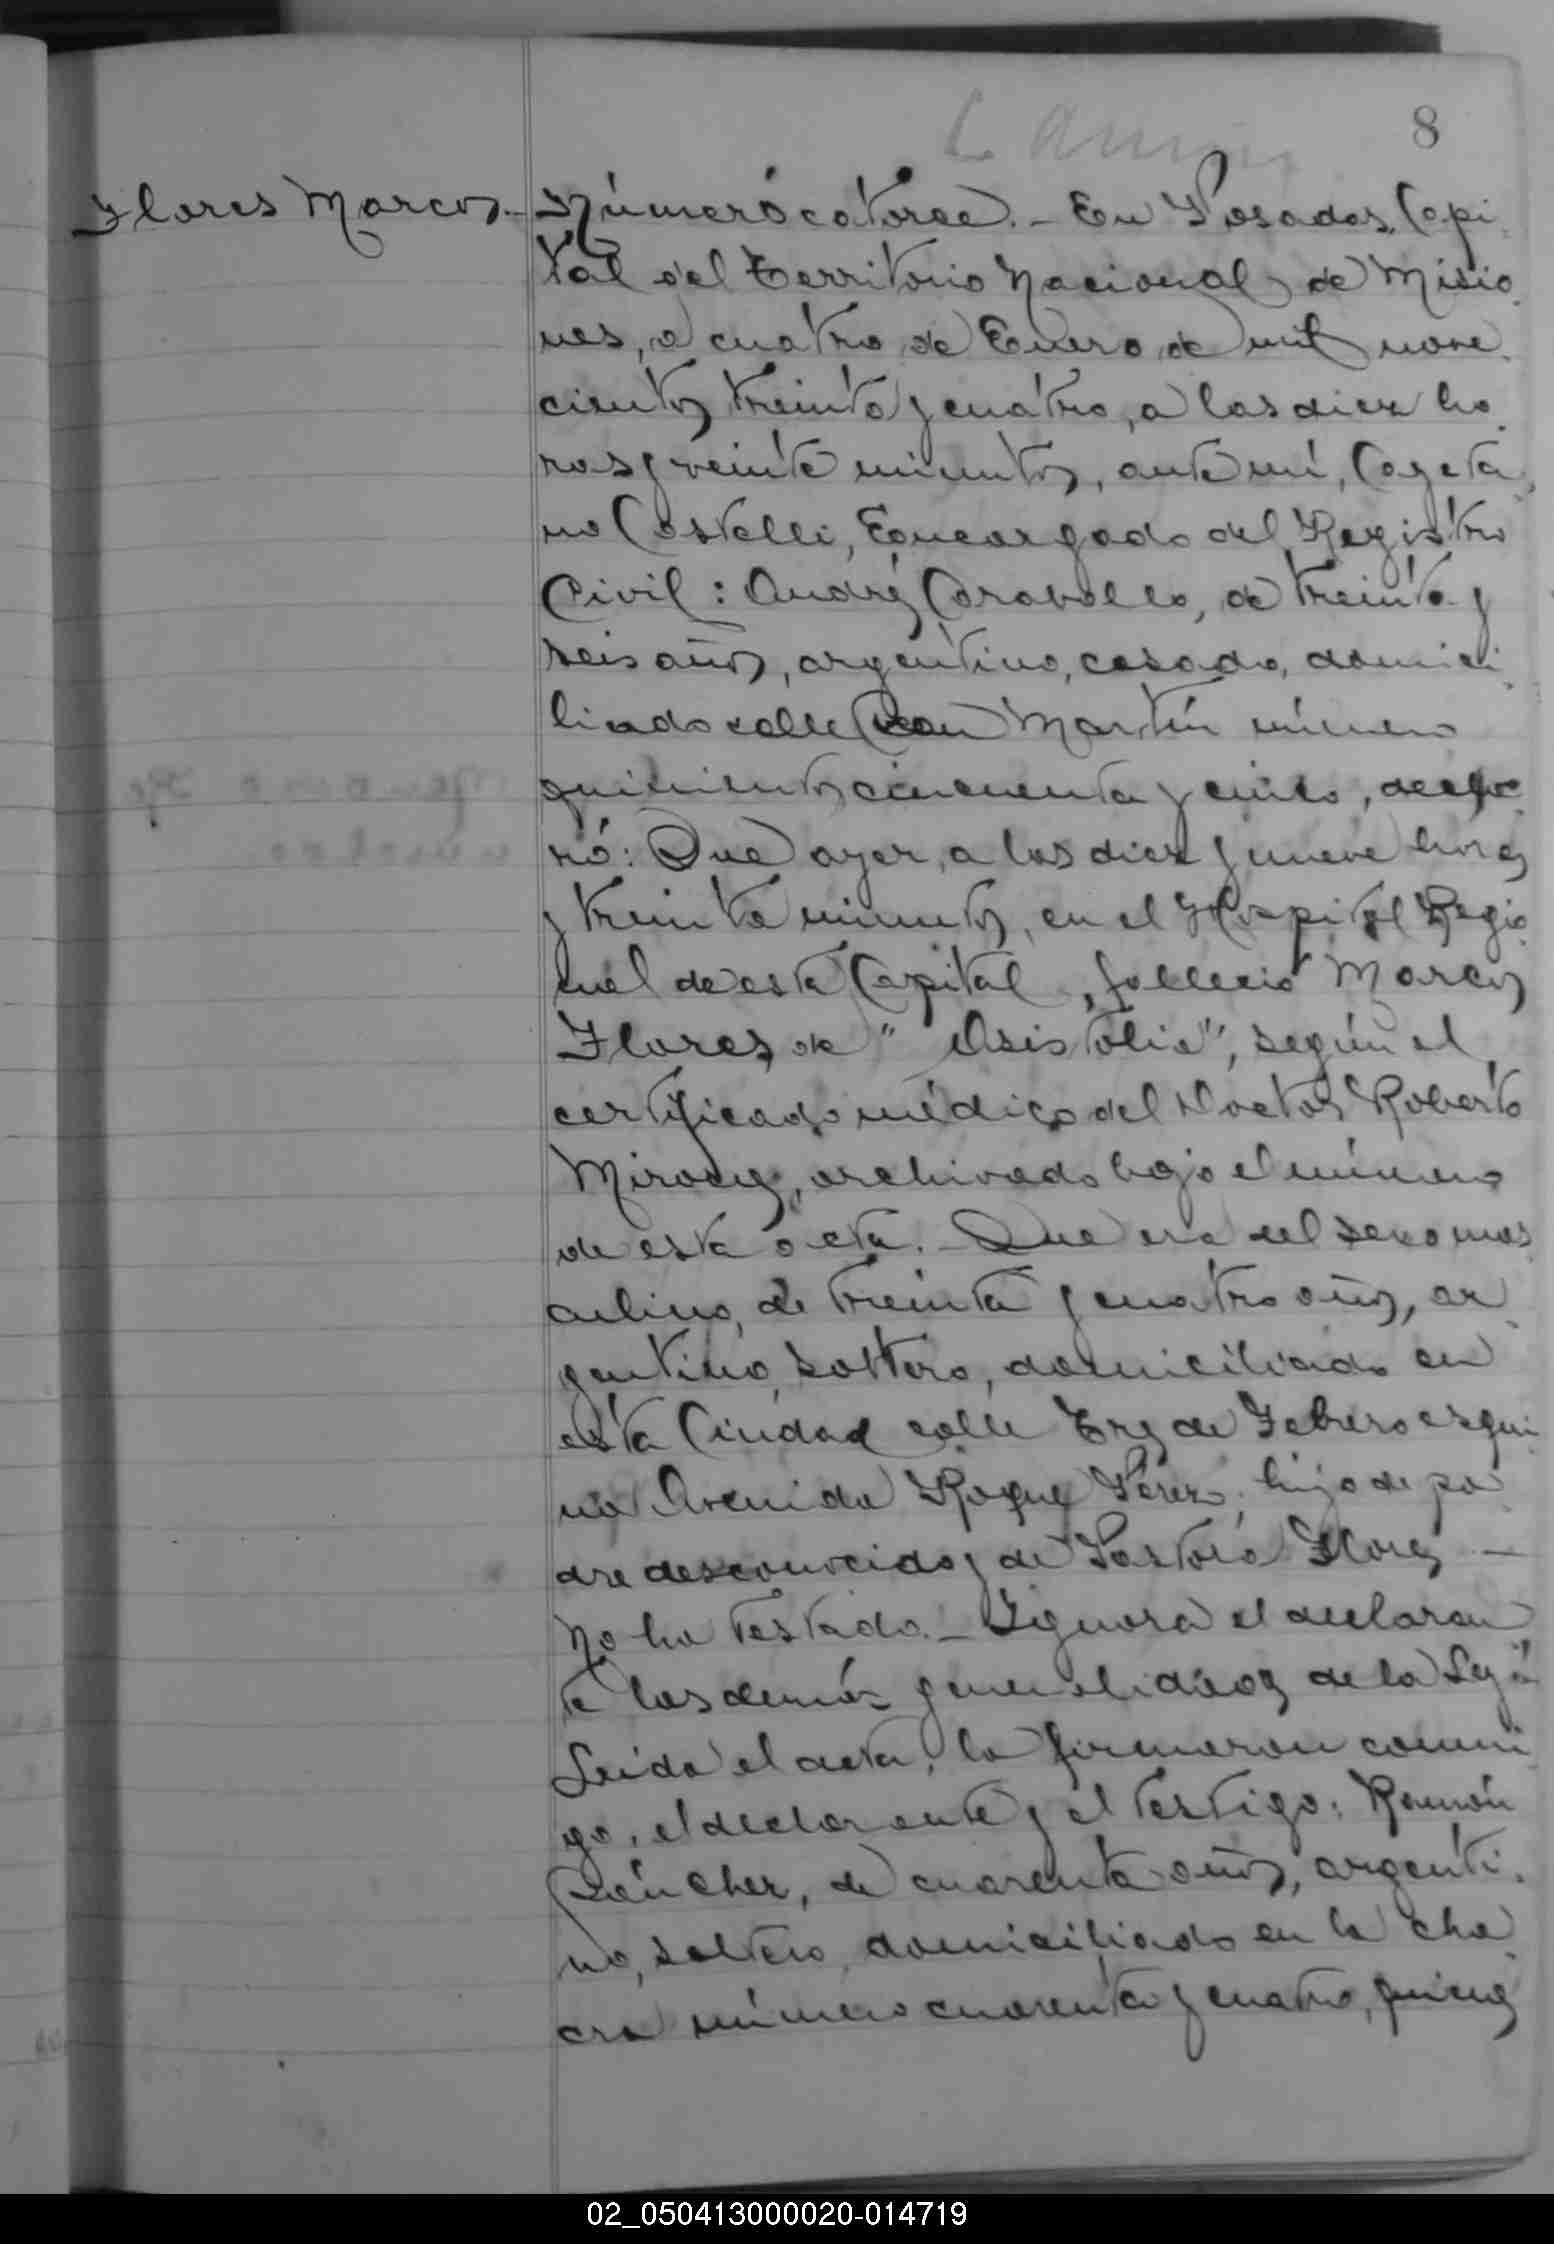 8
Flores Marcos.- Número catorce.- En Posadas, Capi
tal del Territorio Nacional de Misio
nes, a cuatro de Enero de mil nove
cientos treinta y cuatro, a las diez ho
ras y veinte minutos, ante mí, Cayeta
no Castelli, Encargado del Registro
Civil: Andrés Caraballo, de treinta y
seis años, argentino, casado, domici
liado calle San Martín número
quinientos cincuenta y cinco, decla
ró: Que ayer, a las diez y nueve horas
y treinta minutos, en el Hospital Regio
nal de esta Capital, falleció Marcos
Flores de "Asistolia", según el
certificado médico del Doctor Roberto
archivado bajo el número
de esta acta.- Que era del sexo mas
culino, de treinta y cuatro años, ar
gentino, soltero, domiciliado en
esta Ciudad calle Tres de Febrero esqui
na Avenida Roque Perez; hijo de pa
dre desconocido y de Pastora Flores —
No ha testado.- Ignora el declaran
te las demás generalidades de la Ley.-
Leída el acta, la firmaron conmi
go, el declarante y el testigo: Ramón
Sánchez, de cuarenta años, argenti
no, soltero, domiciliado en la cha
cra número cuarenta y cuatro, quienes
02_050413000020-014719